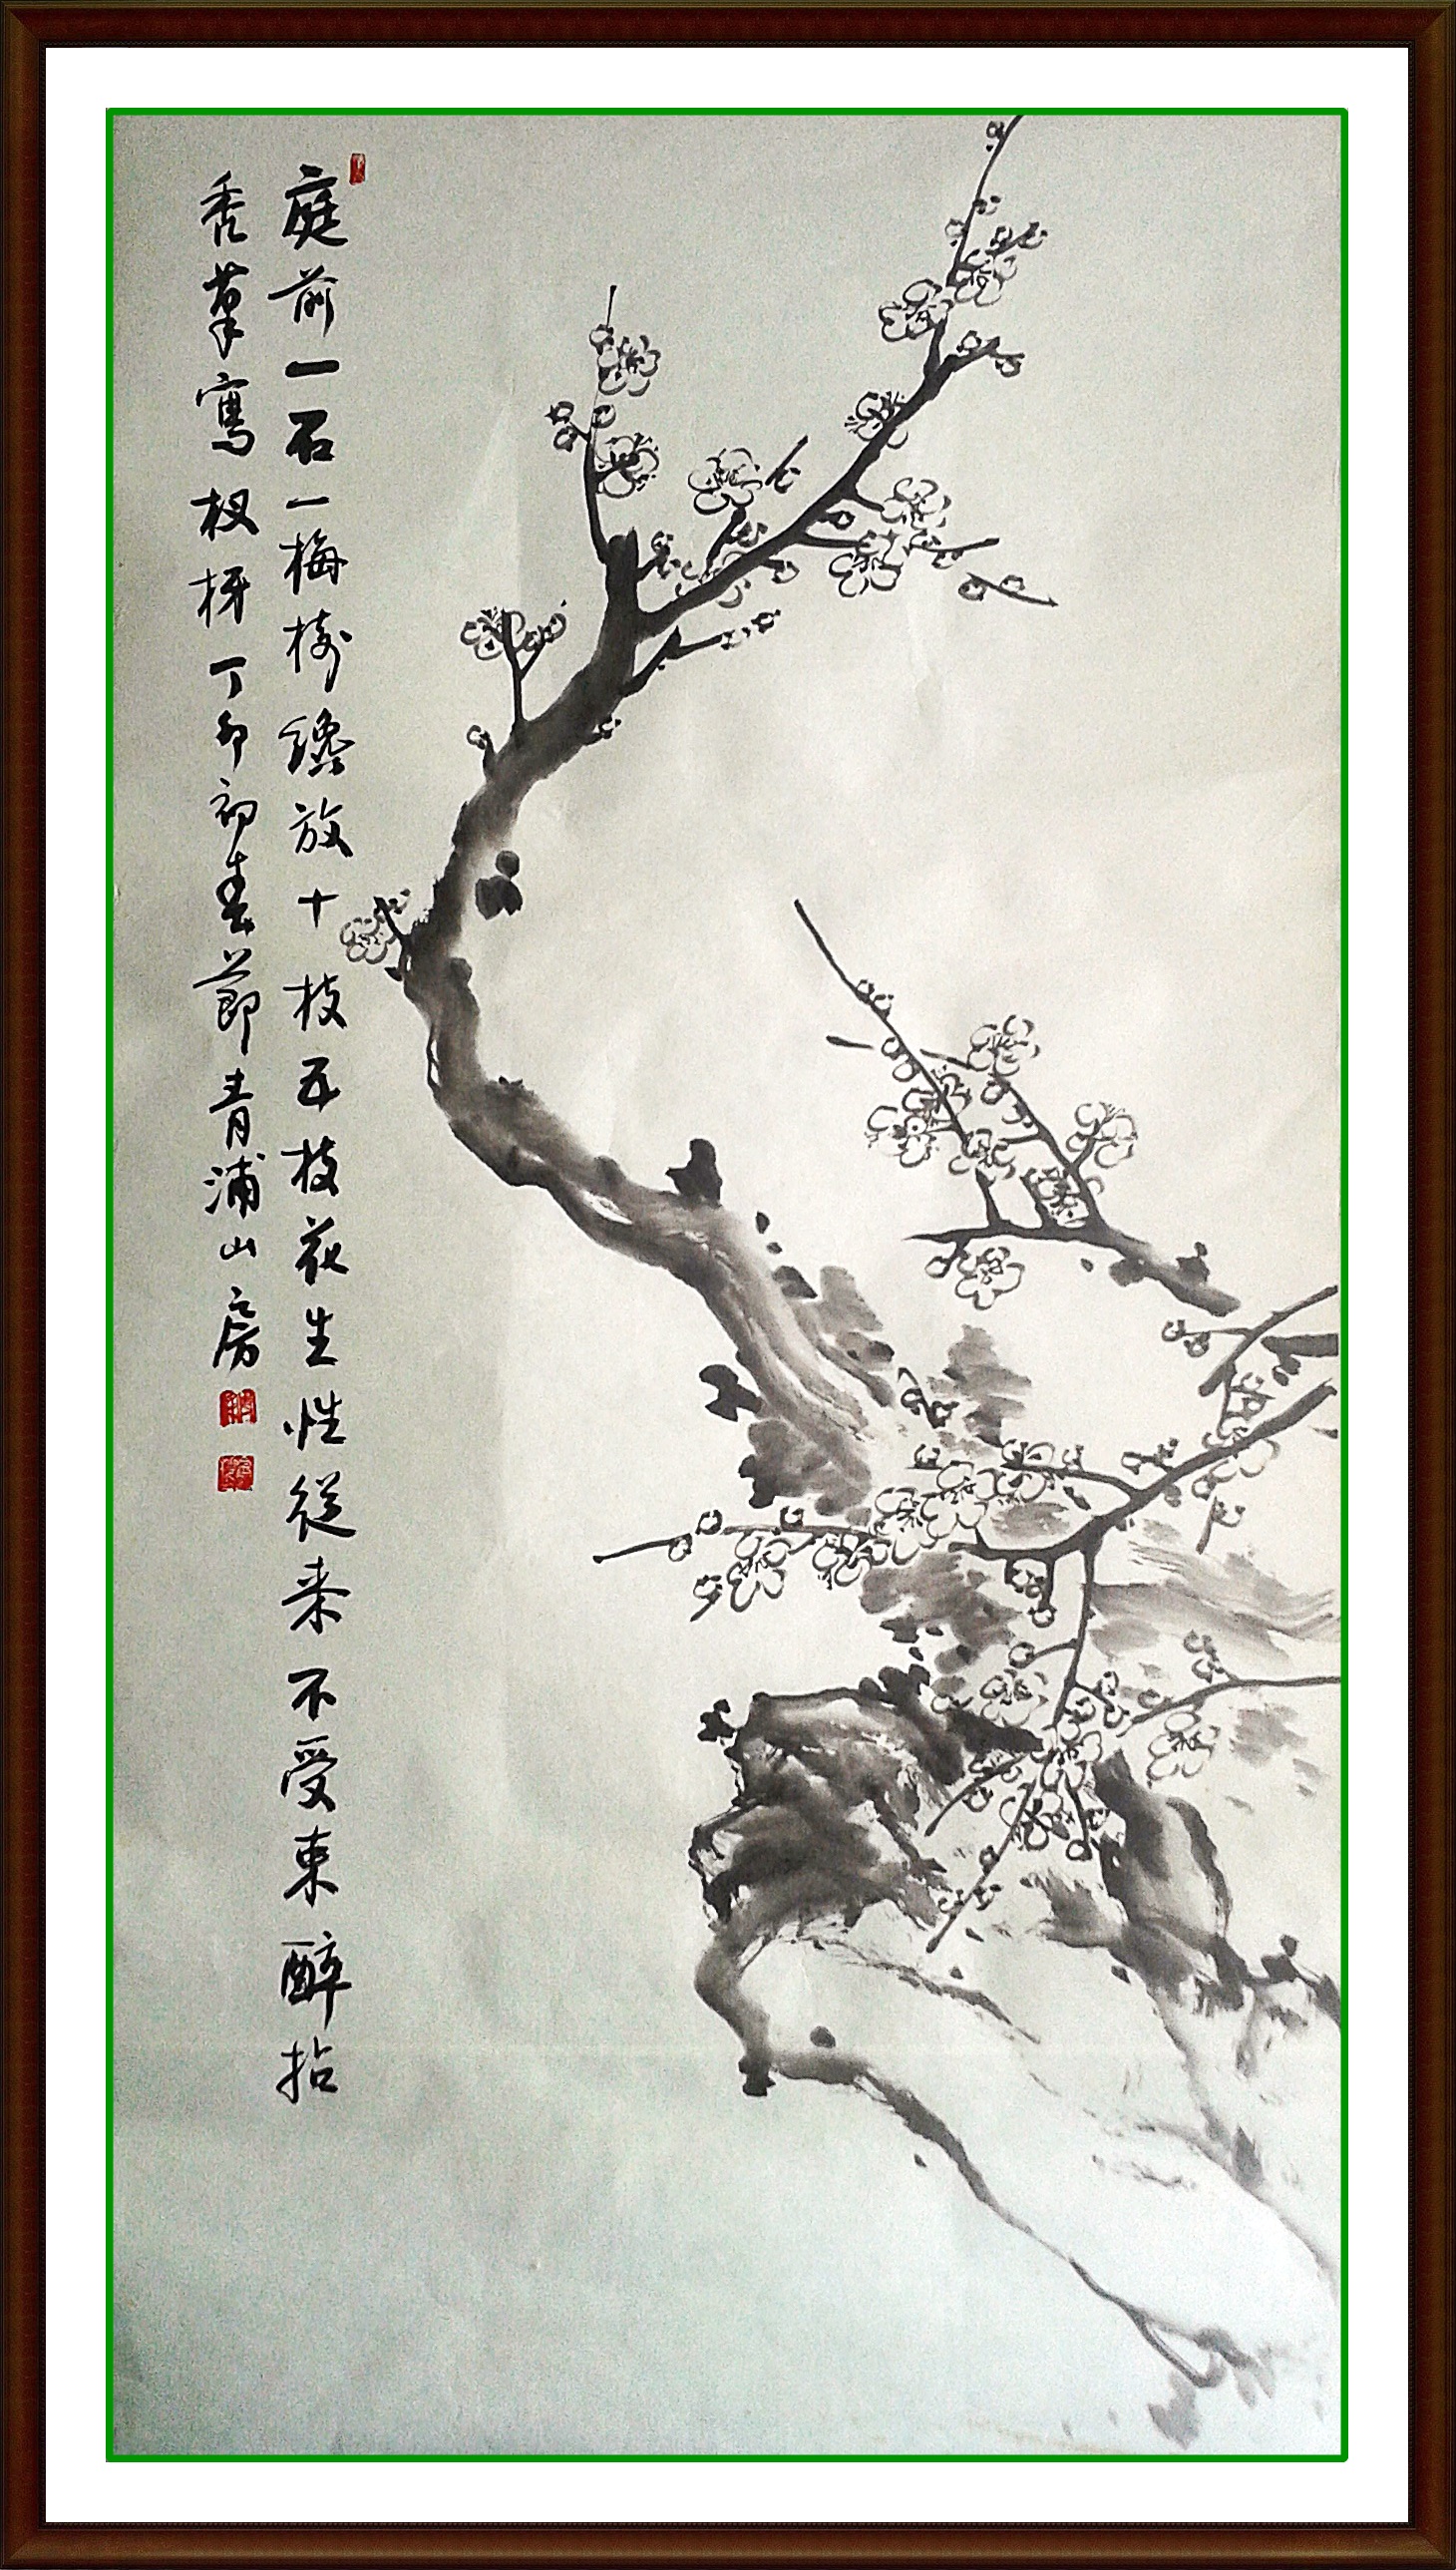 庭前一石一梅樹纔放十枝五枝花生性從来不受束醉拈
秃筆寫杈枒丁卯初春節青浦山房